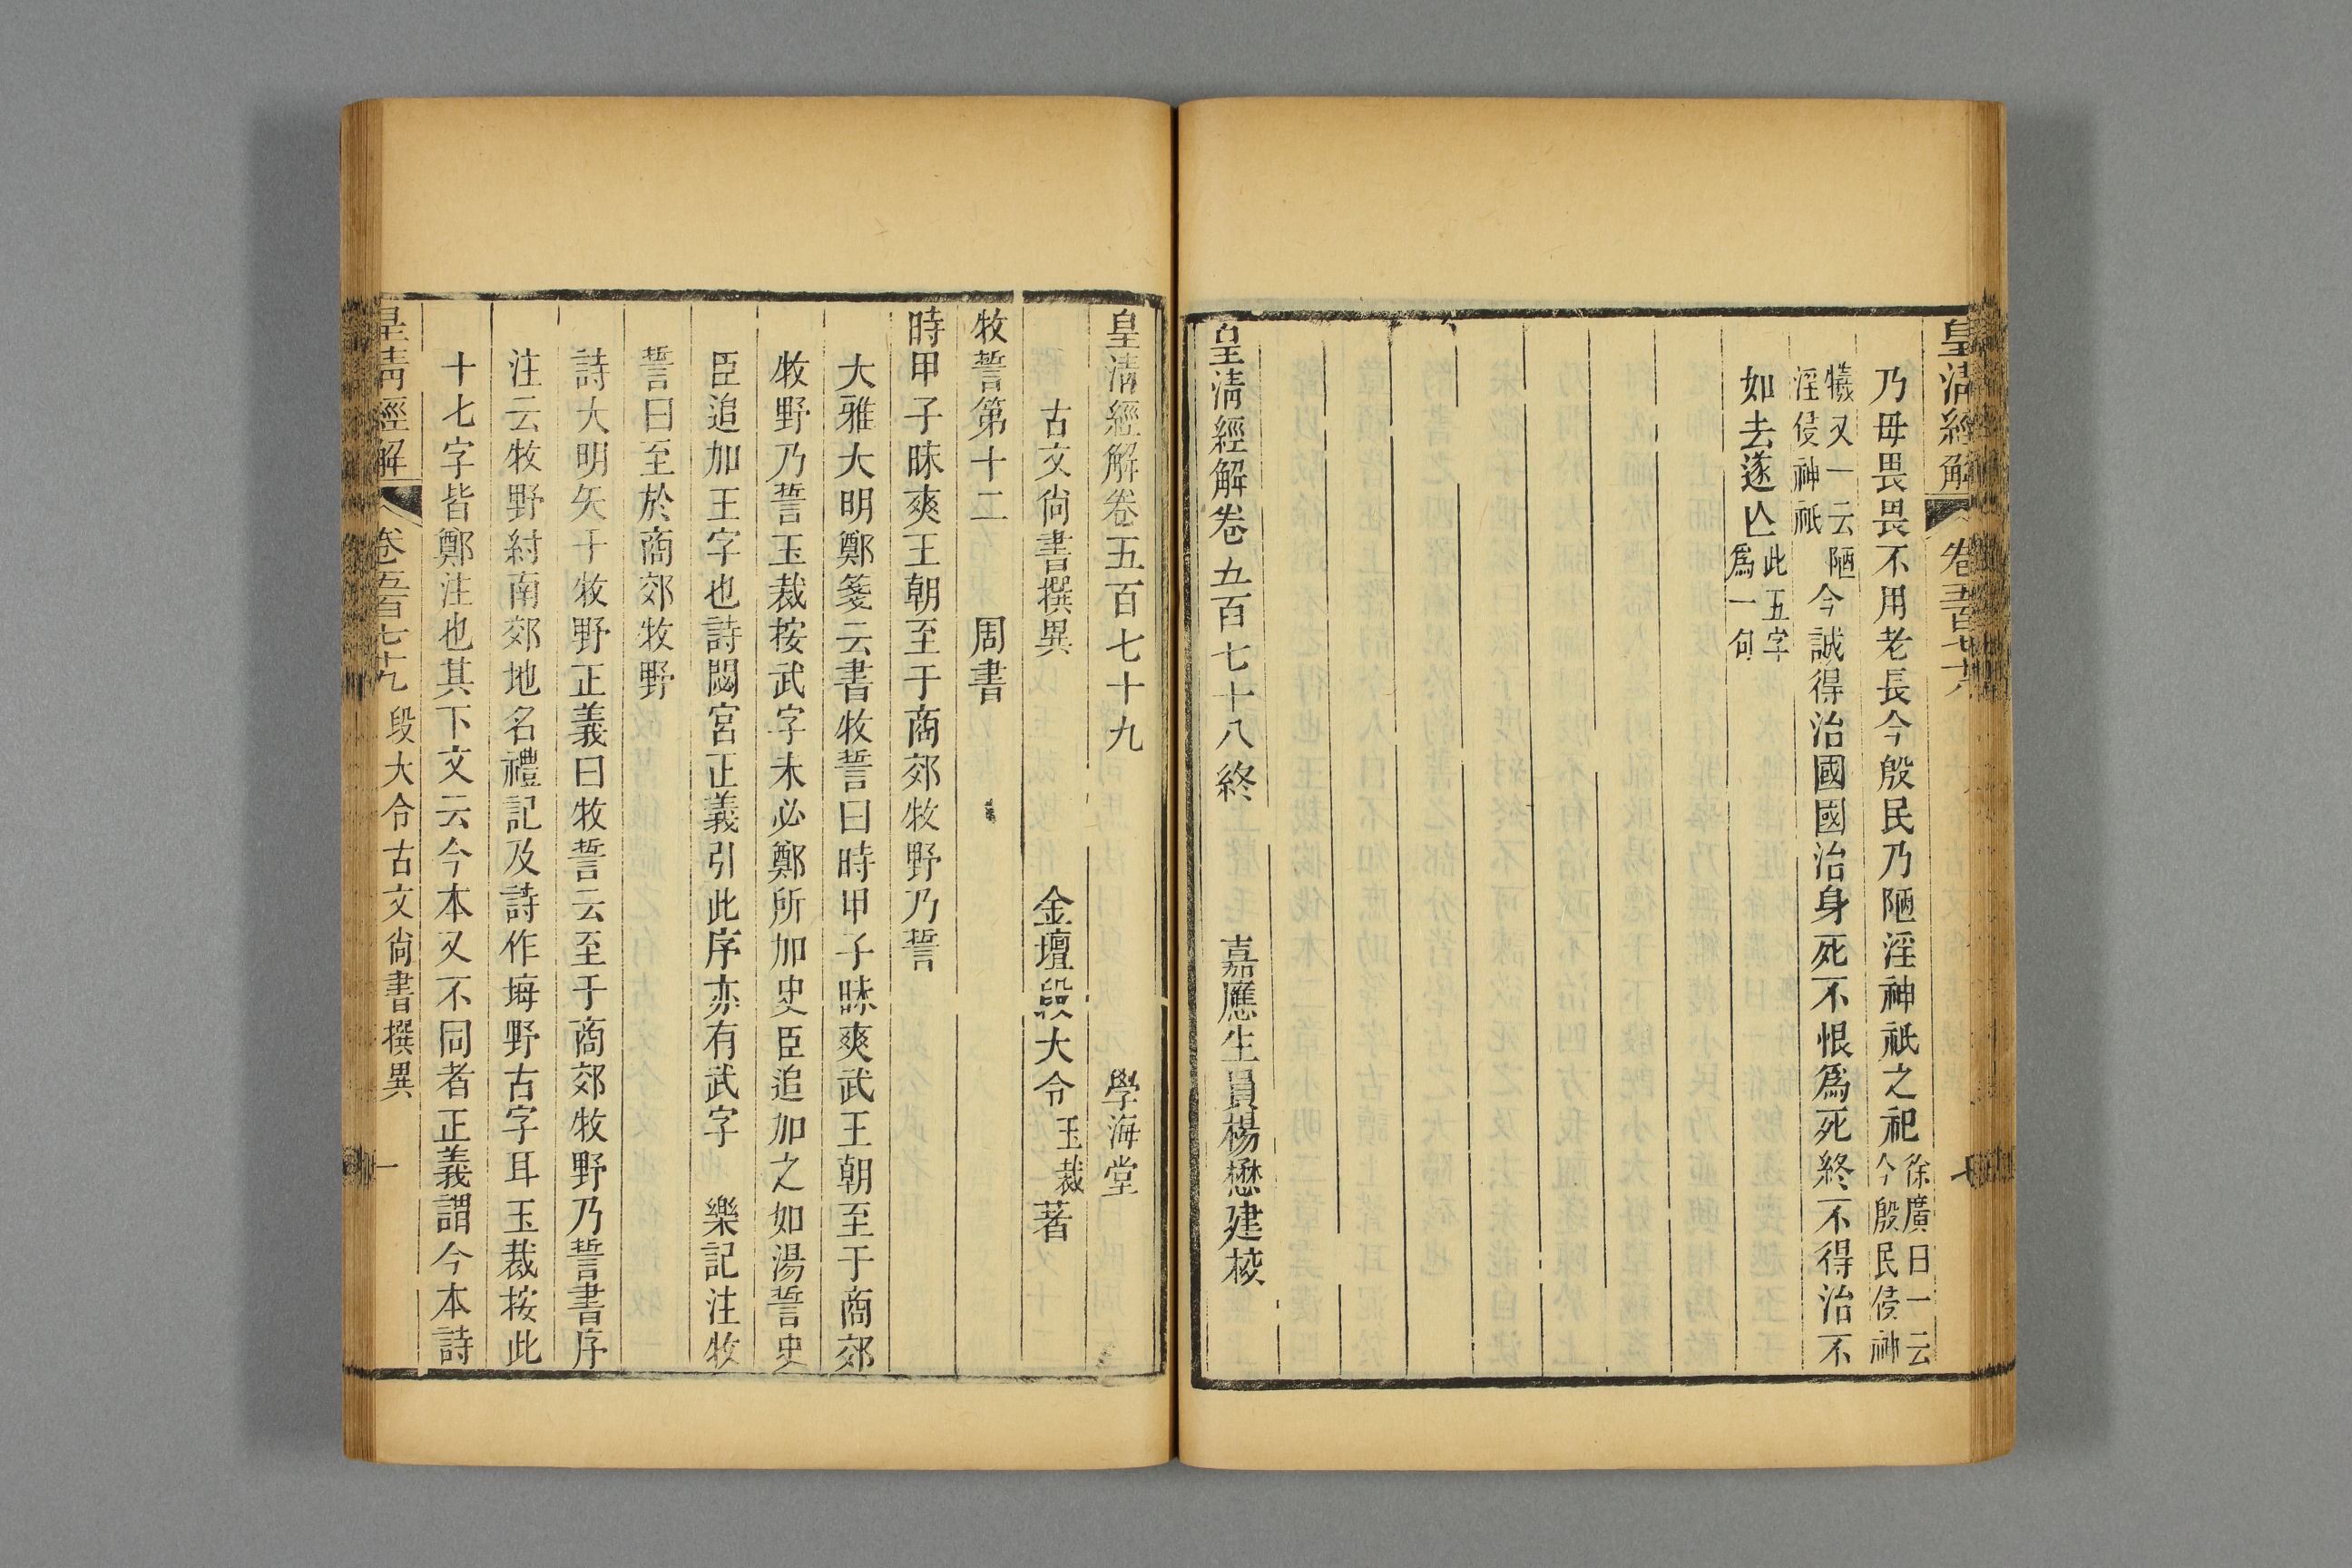 皇清經解 卷五百七十八 七
乃毋畏畏不用老長今殷民乃陋淫神祇之祀徐廣曰一云今殷民侵神
犧又一云陋淫侵神祇今誠得治國國治身死不恨爲死終不得治不
如去遂亾此五字爲一句
皇清經解卷五百七十八終 嘉應生員楊懋建校
皇清經解卷五百七十九 學海堂
古文尙書撰異 金壇段大令玉裁著
牧誓第十二 周書
時甲子昧爽王朝至于商郊牧野乃誓
大雅大明鄭箋云書牧誓曰時甲子昧爽武王朝至于商郊
牧野乃誓玉裁按武字未必鄭所加史臣追加之如湯誓史
臣追加王字也詩閟宮正義引此序亦有武字 樂記注牧
誓曰至於商郊牧野
詩大明矢于牧野正義曰牧誓云至于商郊牧野乃誓書序
注云牧野紂南郊地名禮記及詩作坶野古字耳玉裁按此
十七字皆鄭注也其下文云今本又不同者正義謂今本詩
皇清經解 卷五百七十九 段大令古文尙書撰異 一